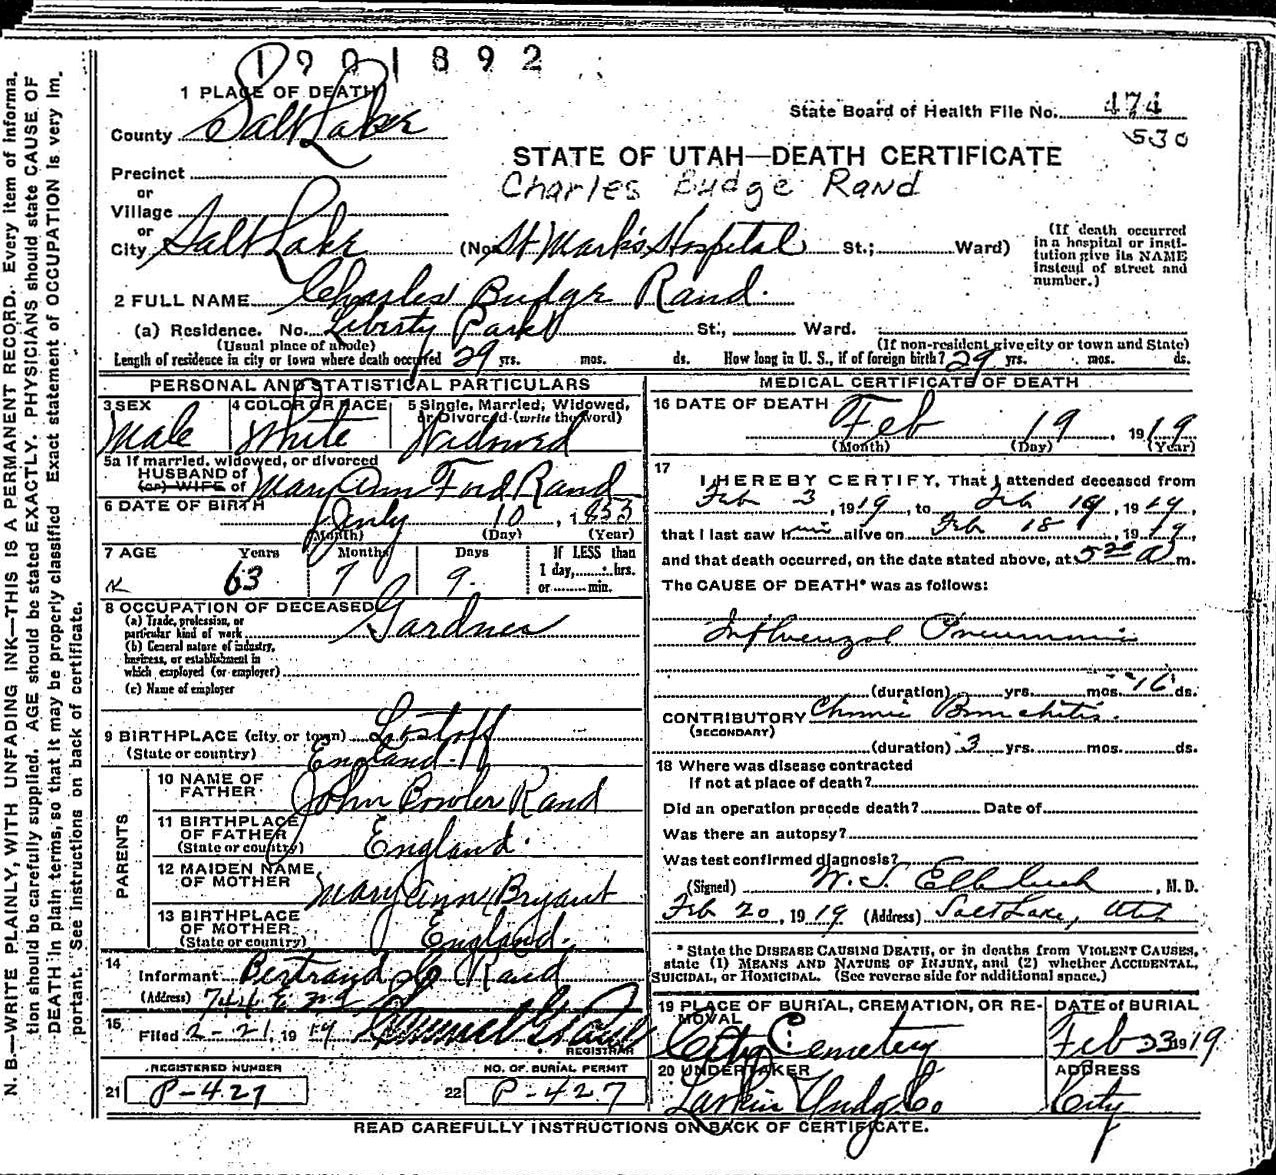 1901892
1 PLACE OF DEATH
State Board of Health File No. 474
530
County Salt Lake
STATE OF UTAH—DEATH CERTIFICATE
Charles Budge Rand
Precinct
or
Village
or
City Salt Lake (No. St Mark's Hospital St.; Ward)
(If death occurred in a hospital or institution give its NAME instead of street and number.)
2 FULL NAME Charles Budge Rand.
(a) Residence. No. Liberty Park St., Ward.
(Usual place of abode) (If non-resident give city or town and State)
Length of residence in city or town where death occurred 29 yrs. mos. ds. How long in U. S., if of foreign birth? 29 yrs. mos. ds.
PERSONAL AND STATISTICAL PARTICULARS
3 SEX Male
4 COLOR OR RACE White
5 Single, Married, Widowed, or Divorced (write the word) Widowed
5a If married, widowed, or divorced
HUSBAND of
(or) WIFE of Mary Ann Ford Rand
6 DATE OF BIRTH July 10, 1853
(Month) (Day) (Year)
7 AGE Years 63 Months 7 Days 9.
If LESS than 1 day, hrs. or min.
8 OCCUPATION OF DECEASED
(a) Trade, profession, or particular kind of work Gardner
(b) General nature of industry, business, or establishment in which employed (or employer)
(c) Name of employer
9 BIRTHPLACE (city or town)
(State or country) England.
PARENTS
10 NAME OF FATHER John Bowler Rand
11 BIRTHPLACE OF FATHER (State or country) England.
12 MAIDEN NAME OF MOTHER Mary Ann Bryant
13 BIRTHPLACE OF MOTHER (State or country) England.
14 Informant Bertrand Rand
(Address) 744 E
15 Filed 2-21, 19 19
REGISTRAR
REGISTERED NUMBER
21 P-427
NO. OF BURIAL PERMIT
22 P-427
MEDICAL CERTIFICATE OF DEATH
16 DATE OF DEATH Feb 19, 1919
(Month) (Day) (Year)
17 I HEREBY CERTIFY, That I attended deceased from
Feb 3, 1919, to Feb 19, 1919,
that I last saw him alive on Feb 18, 1919,
and that death occurred, on the date stated above, at 5 20 a m.
The CAUSE OF DEATH* was as follows:
Influenzal Pneumonia
(duration) yrs. mos. 16 ds.
CONTRIBUTORY Chronic Bronchitis.
(SECONDARY)
(duration) 3 yrs. mos. ds.
18 Where was disease contracted
if not at place of death?
Did an operation precede death? Date of
Was there an autopsy?
Was test confirmed diagnosis?
(Signed) W. S. , M. D.
Feb 20, 1919 (Address) Salt Lake, Utah
* State the DISEASE CAUSING DEATH, or in deaths from VIOLENT CAUSES,
state (1) MEANS AND NATURE OF INJURY, and (2) whether ACCIDENTAL,
SUICIDAL, OR HOMICIDAL. (See reverse side for additional space.)
19 PLACE OF BURIAL, CREMATION, OR REMOVAL
City Cemetery
DATE of BURIAL
Feb 23 1919
20 UNDERTAKER
Larkin Undg. Co
ADDRESS
City
READ CAREFULLY INSTRUCTIONS ON BACK OF CERTIFICATE.
N. B.—WRITE PLAINLY, WITH UNFADING INK—THIS IS A PERMANENT RECORD. Every item of informa-
tion should be carefully supplied. AGE should be stated EXACTLY. PHYSICIANS should state CAUSE OF
DEATH in plain terms, so that it may be properly classified Exact statement of OCCUPATION is very im-
portant. See instructions on back of certificate.